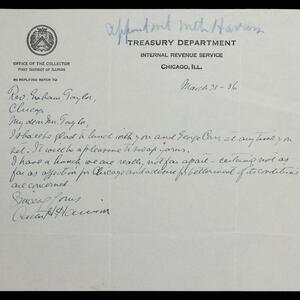 Appointment with Harrison
TREASURY DEPARTMENT
INTERNAL REVENUE SERVICE
CHICAGO, ILL.
OFFICE OF THE COLLECTOR
FIRST DISTRICT OF ILLINOIS
IN REPLYING REFER TO
March 31-36
Rev. Graham Taylor,
Chicago
My dear Mr. Taylor,
I shall be glad to lunch with you and George C at any time you
set. It will be a pleasure to swap yarns.
I have a hunch we are really not far apart - certainly not as
far as affection for Chicago and for betterment of its conditions
are concerned.
Sincerely yours
Carter H Harrison